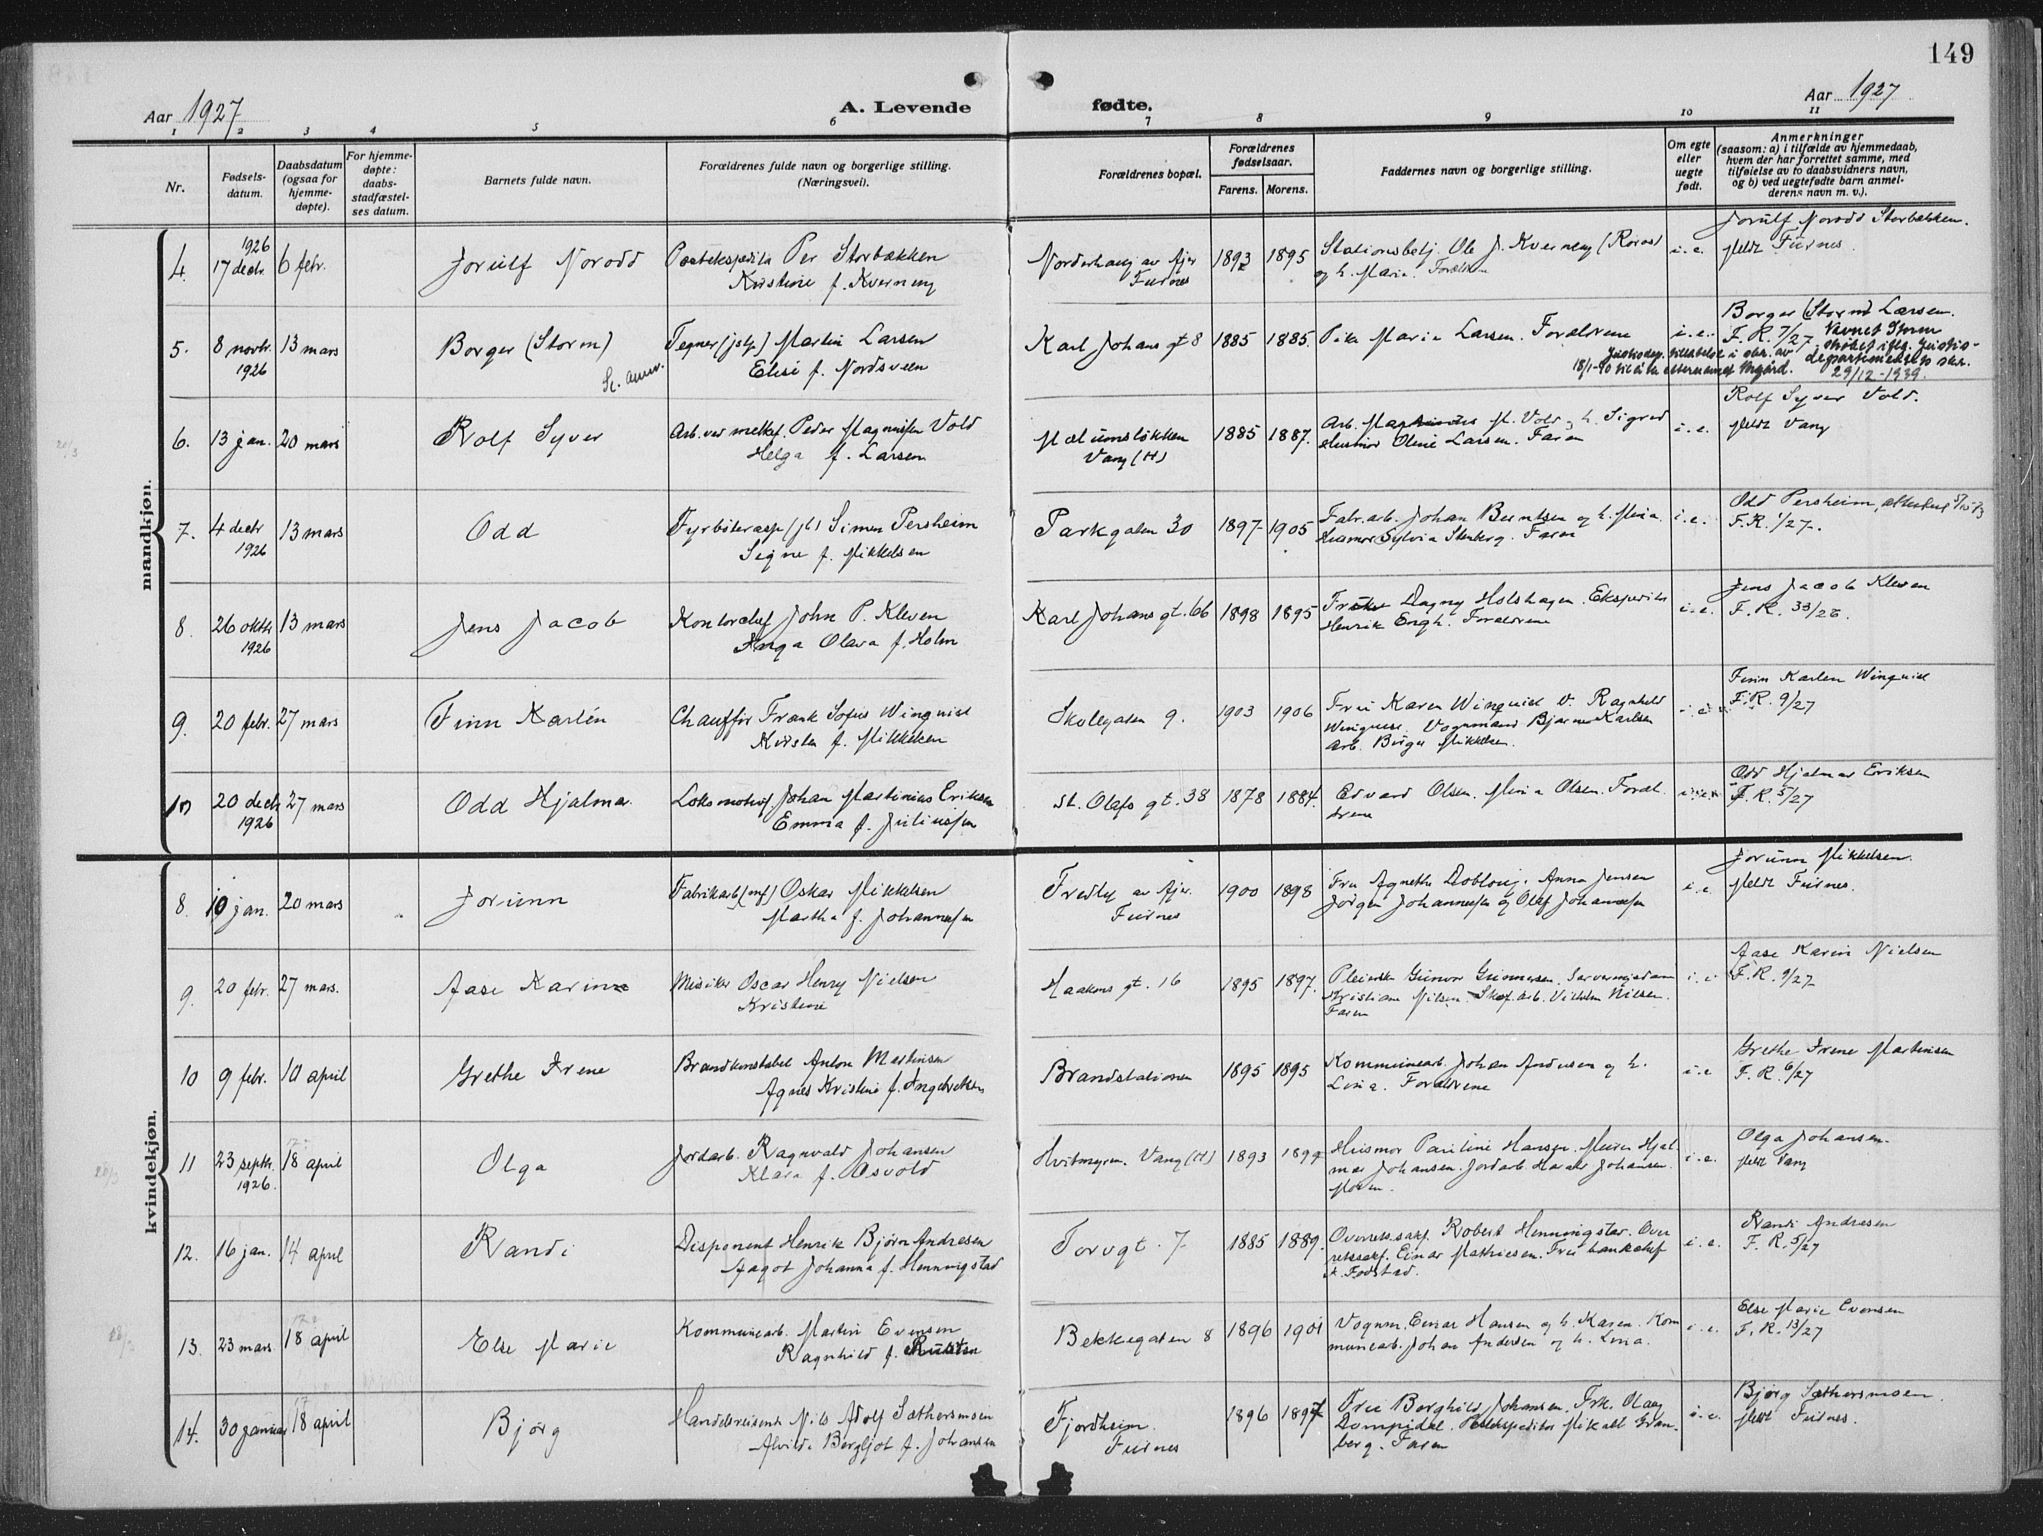 149
Aar 1927
A. Levende fødte.
Aar 1927
1 2 3 4 5 6 7 8 9 10 11
Nr.
Fødsels-
datum.
Daabsdatum
(ogsaa for
hjemme-
døpte).
For hjemme-
døpte:
daabs-
stadfæstel-
ses datum.
Barnets fulde navn.
Forældrenes fulde navn og borgerlige stilling.
(Næringsvei).
Forældrenes bopæl.
Forældrenes
fødselsaar.
Farens. Morens.
Faddernes navn og borgerlige stilling.
Om egte
eller
uegte
født.
Anmerkninger
(saasom: a) i tilfælde av hjemmedaab,
hvem der har forrettet samme, med
tilføielse av to daabsvidners navn,
og b) ved uegtefødte barn anmel-
derens navn m. v.).
mandkjøn.
4. 1926 17 decbr. 6 febr. Jorulf Norodd
Postekspeditør Per Storbækken
Kristine f. Kverneng
Norderhaug av Ajer
Furnes
1893 1895
Stationsbetj. Ole J. Kverneng (Røros)
og h. Marie. Forældrene
i. e.
Jorulf Norodd Storbækken.
Meldt Furnes.
5. 8 novbr. 1926 13 mars Borger (Storm)
Se anm.
Tegner (jstp.) Martin Larsen
Elise f. Nordsveen
Karl Johans gt 8 1885 1885.
Pike Marie Larsen. Forældrene
i. e.
Borger (Storm) Larsen.
F. R. 7/27. Navnet Storm
strøket iflg. Justis-
departementets skr.
29/12-1939.
18/1-40 til å ta etternavnet
6. 13 jan. 20 mars Rolf Syver
Arb. ved melkef. Peder Magnussen Vold
Helga f. Larsen
Mælumsløkken
Vang (H)
1885 1887.
Arb. M. Vold og h. Sigrid
Olene Larsen. Faren
i. e.
Rolf Syver Vold.
Meldt Vang
7. 4 decbr 1926 13 mars Odd
Fyrbøterasp (jb) Simen Persheim
Signe f. Mikkelsen
Parkgaten 30 1897 1905
Fabr. arb. Johan Berntsen og h. Maria.
Sylvia Stenberg. Faren
i. e.
Odd Persheim,
F. R. 1/27.
8. 26 oktbr 1926 13 mars Jens Jacob
Kontorchef John P. Kleven
Inga Olava f. Holm
Karl Johans gt. 66 1898 1895
Frøken Dagny Holshagen. Ekspeditør
Henrik Engh. Forældrene
i. e.
Jens Jacob Kleven
F. R. 33/26.
9. 20 febr. 27 mars Finn Karlén
Chauffør Frank Sofus Winquist
Kirsten f. Mikkelsen
Skolegaten 9. 1903 1906
Fru Karen Winquist v. Ragnhild
Winquist. Vognmand Bjarne Karlsen
Arb. Birger Mikkelsen.
i. e.
Finn Karlen Winquist
F. R. 9/27
10 20 decb. 1926 27 mars Odd Hjalmar
Lokomotivf. Johan Martinius Eriksen
Emma f. Juliussen
St. Olafs gt. 38 1878 1884.
Edvard Olsen. Maria Olsen. Foræl-
drene
i. e.
Odd Hjalmar Eriksen
F. R. 5/27
kvindekjøn.
8. 10 jan. 20 mars Jorunn
Fabrikarb. (mf) Oskar Mikkelsen
Martha f. Johannessen
Fredly av Ajer
Furnes
1900 1898
Fru Agnethe Dobloug. Anna Jensen
Jørgen Johannessen og Olaf Johannessen
i. e.
Jorunn Mikkelsen.
Meldt Furnes.
9. 20 febr. 27 mars. Aase Karin
Musiker Oscar Henry Nielsen
Kristine
Haakons gt. 16 1895 1897.
Gunvor Gunnersen.
Kristiane Nilsen. Skof. arb. Vilhelm Nilsen.
Faren
i. e.
Aase Karin Nielsen
F. R. 9/27
10 9 febr. 10 april Grethe Irene
Brandkonstabel Anton Martinsen
Agnes Kristine f. Ingebretsen
Brandstationen 1895 1895
Kommunearb. Johan Andersen og h.
Lina. Forældrene
i. e.
Grethe Irene Martinsen
F. R. 6/27
11 23 septbr. 1926. 18 april Olga
Jordarb. Ragnvald Johansen
Klara f. Osvold
Hvitmyren. Vang (H) 1893 1899
Husmor Pauline Hansen. Murer Hjal-
mar Johansen. Jordarb. Harald Johansen.
Moren.
i. e.
Olga Johansen.
Meldt Vang
12. 16 jan. 14 april Randi
Disponent Henrik Bjørn Andresen
Aagot Johanna f. Henningstad
Torvgt. 7 1885 1889.
Overretssakf. Robert Henningstad. Over-
retssakf. Einar Mathiesen. Fru bankchef
Fodstad.
i. e.
Randi Andresen
F. R. 5/27
13. 23 mars. 18 april Else Marie
Kommunearb. Martin Evensen
Ragnhild f.
Bekkegaten 8 1896 1901
Vognm. Einar Hansen og h. Karen. Kom-
munearb. Johan Andersen og h. Lina.
i. e.
Else Marie Evensen
F. R. 13/27
14. 30 januar 18 april Bjørg
Handelsreisende Nils Adolf Sæthersmoen
Alvilde Bergljot f. Johansen
Fjordheim.
Furnes
1896 1897
Fru Borghild Johansen. Frk. Olaug
Dompidal. Postekspeditør Mikael Gran-
berg. Faren
i. e.
Bjørg Sæthersmoen.
Meldt Furnes.